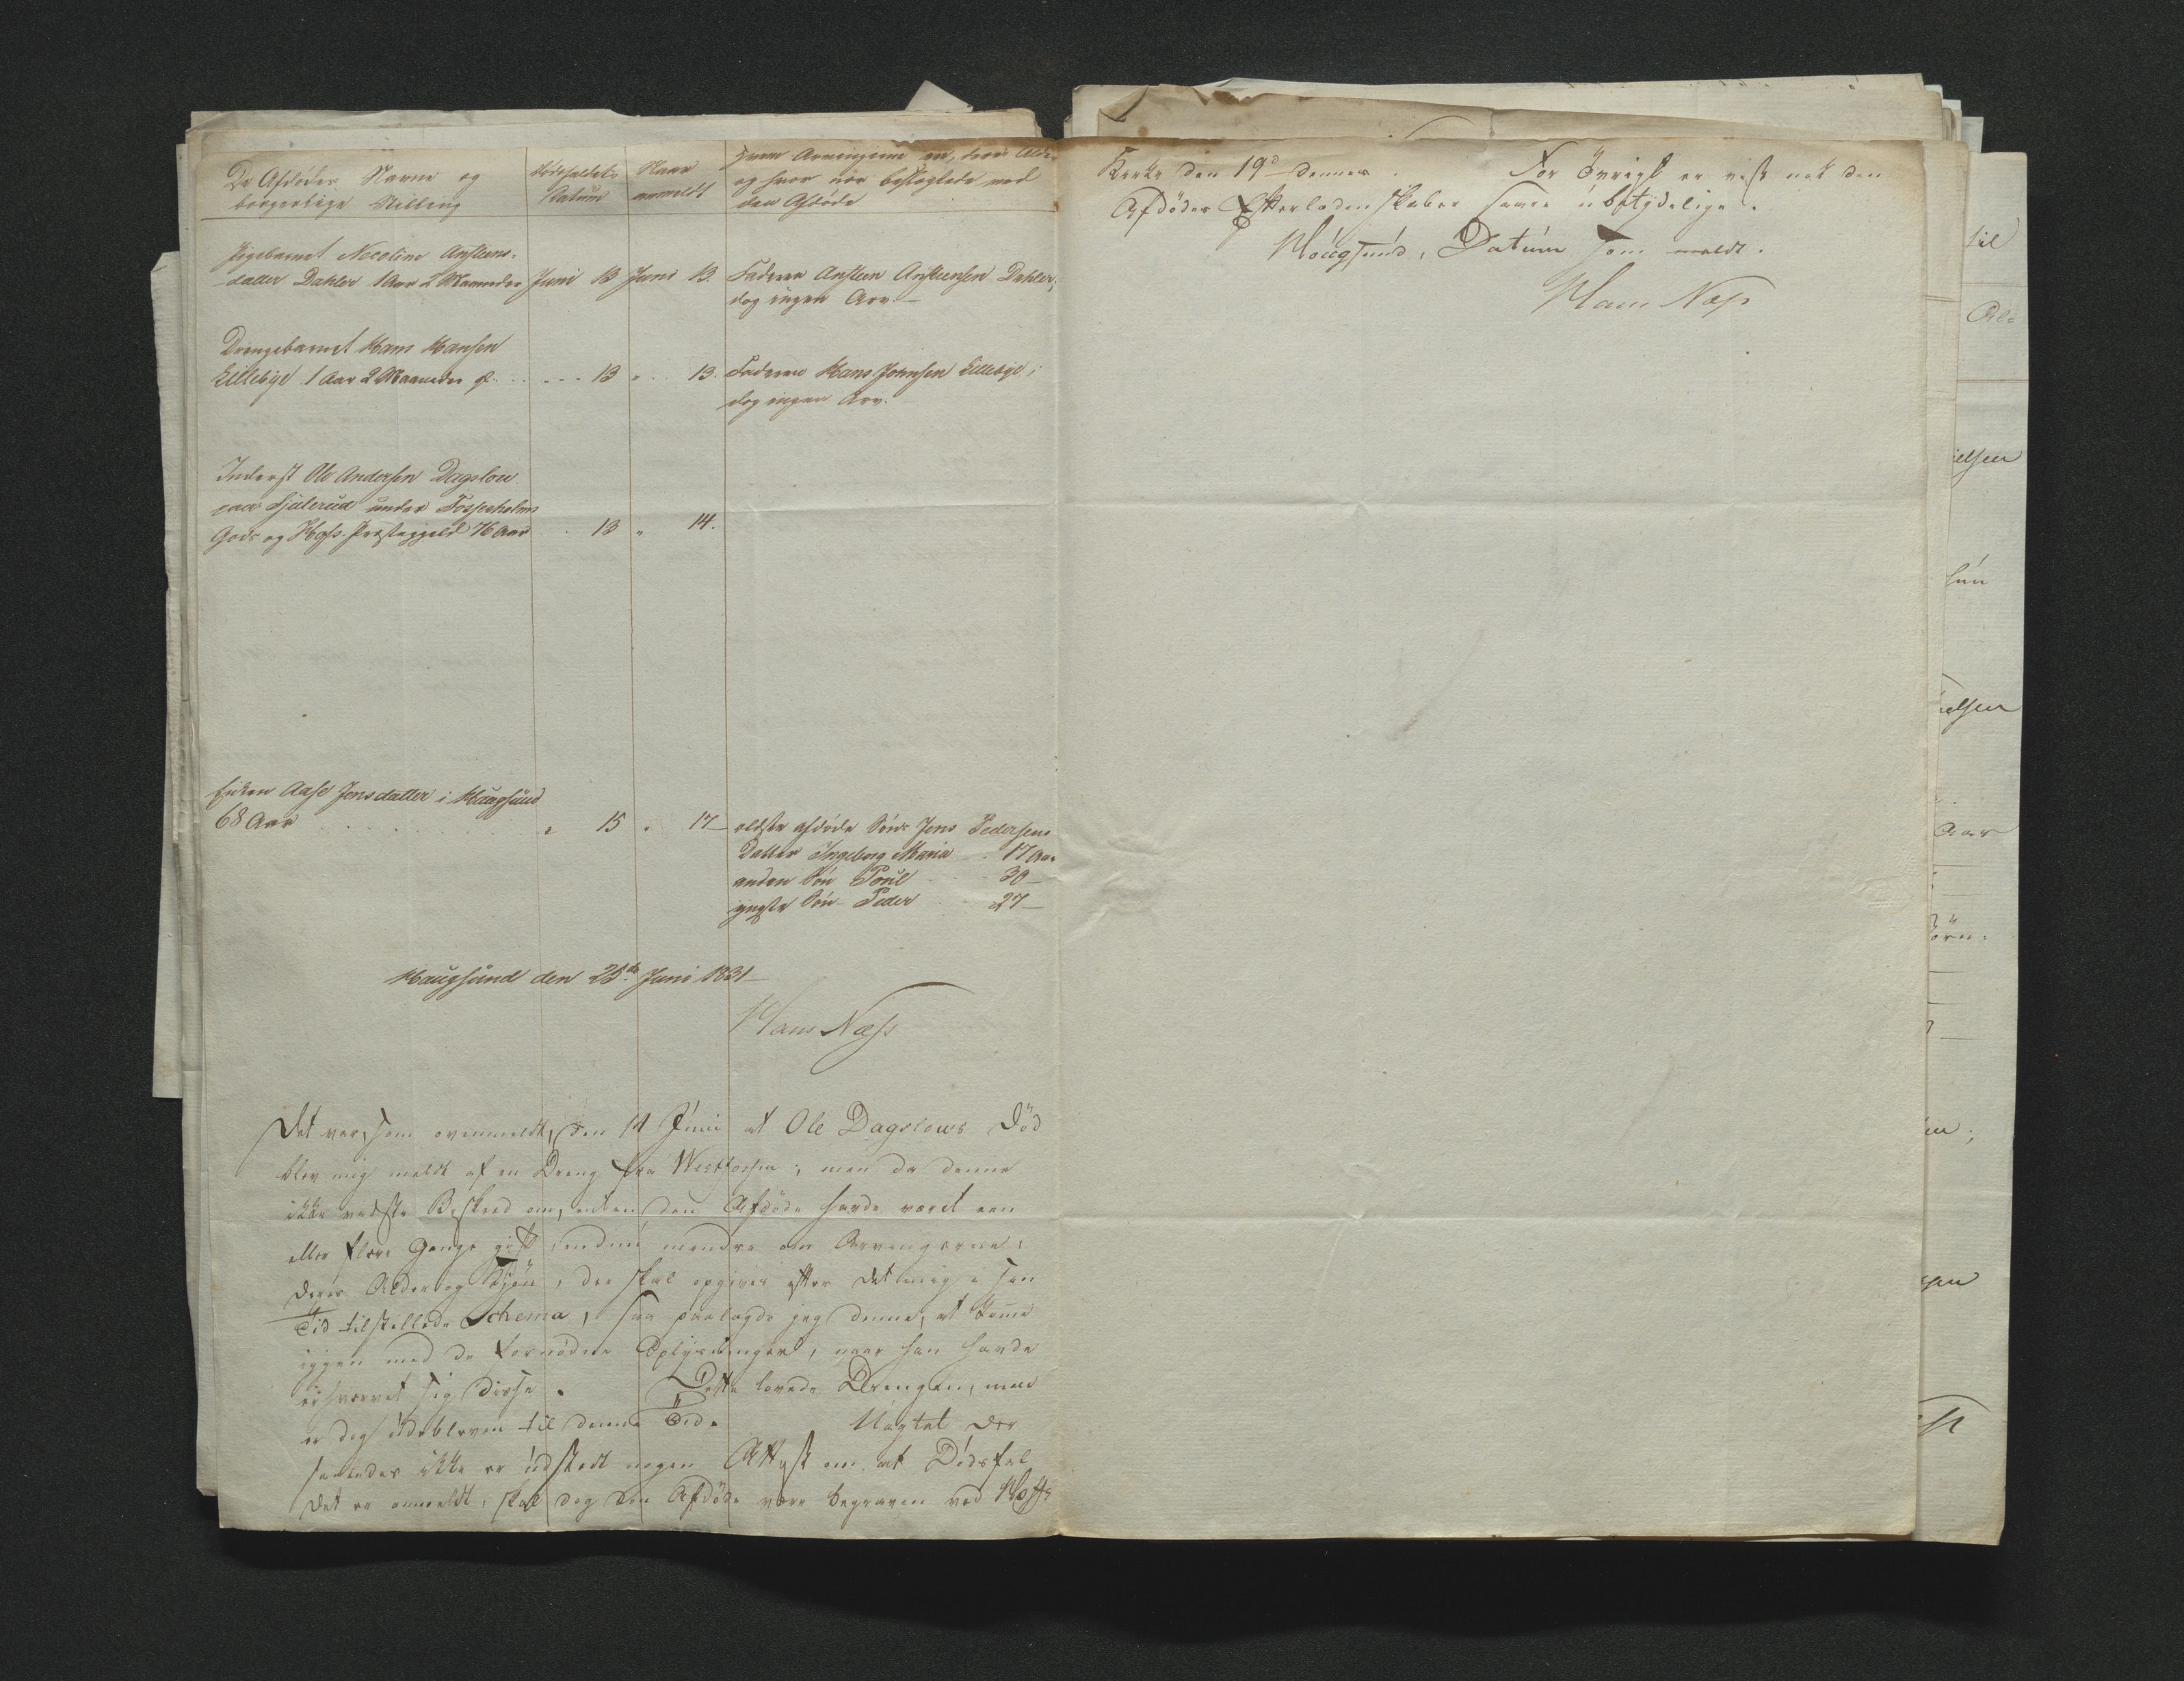 De Afdødes Navne og
borgerlige Stilling
Dødsfaldets
Datum
Naar
anmeldt
Hvem Arvingerne er, deres Alder
og hvor nær beslægtede med
den Afdøde
Pigebarnet Nicoline Anstens-
datter Dahler 1 Aar 2 Maaneder Juni 13 Juni 13. Faderen Ansten Anstensen Dahler;
dog ingen Arv. —
Drengebarnet Hans Hansen
Lillebye 1 Aar 2 Maaneder gl. . . - - - 13 „ . 13. Faderen Hans Johnsen Lillebye;
dog ingen Arv. —
Inderst Ole Andersen Dagslou
paa Hjulerud under Fossesholms
Gods og Hoffs Præstegjeld 76 Aar . 13 „ 14.
Enken Aase Jensdatter i Haugsund
68 Aar . . . . . . . . „ 15 „ 17 — ældste afdøde Søns Jens Pedersens
Datter Ingeborg Maria — . 17 Aar
anden Søn Poul . . . 30 —
yngste Søn Peder . . 27 —
Haugsund den 25de Juni 1831 —
Hans Næss
Det var, som ovenmeldt, den 14 Juni at Ole Dagslous Død
blev mig meldt af en Dreng fra Westfossen; men da denne
ikke vidste Beskeed om, enten den Afdøde havde været een
eller flere Gange gift, endnu mindre om Arvingerne,
deres Alder og Kjøn, der skal opgives efter det mig i sin
Tid tilstillede Schema, saa paalagde jeg denne, at komme
igjen med de fornødne Oplysninger, naar han havde
erhvervet sig disse. Dette lovede Drengen, men
er dog udebleven til denne Tid. Uagtet der
saaledes ikke er udstedt nogen Attest om at Dødsfal
det er anmeldt, skal dog den Afdøde være begraven ved Hoffs
Kirke den 19d dennes. For Øvrigt er vist nok den
Afdødes Efterladenskaber saare ubetydelige.
Hougsund, Datum som meldt.
Hans Næss
til
elsen
hun
elsen
Aar
ørn.
en;
sen